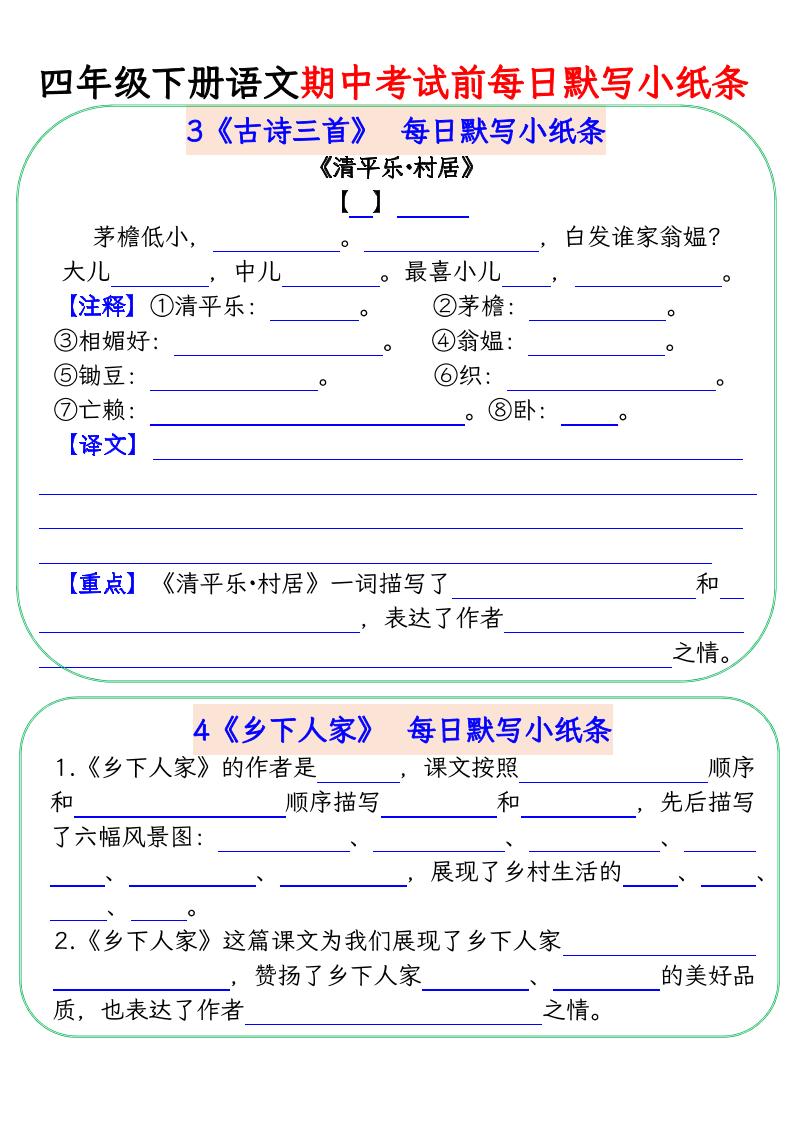 四年级下册语文期中考试前每日默写小纸条
3《古诗三首》 每日默写小纸条
《清平乐·村居》
【__】 ______
茅檐低小，__________。______________，白发谁家翁媪？
大儿________，中儿________。最喜小儿____，____________。
【注释】①清平乐：_______。 ②茅檐：___________。
③相媚好：_________________。 ④翁媪：___________。
⑤锄豆：______________。 ⑥织：_________________。
⑦亡赖：__________________________。⑧卧：_____。
【译文】________________________________________________
___________________________________________________________
__________________________________________________________
________________________________________________________
【重点】《清平乐·村居》一词描写了____________________和__
__________________________，表达了作者____________________
____________________________________________________之情。
4《乡下人家》 每日默写小纸条
1.《乡下人家》的作者是_______，课文按照________________顺序
和__________________顺序描写__________和__________，先后描写
了六幅风景图：___________、___________、___________、______
_____、___________、___________，展现了乡村生活的_____、_____、
_____、_____。
2.《乡下人家》这篇课文为我们展现了乡下人家________________
_______________，赞扬了乡下人家_________、_________的美好品
质，也表达了作者_________________________之情。